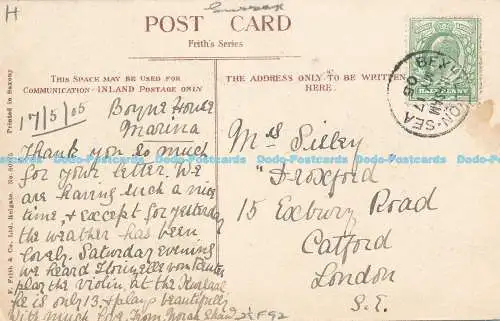 H
Sussex
POST CARD
Frith's Series
THIS SPACE MAY BE USED FOR
COMMUNICATION - INLAND POSTAGE ONLY
THE ADDRESS ONLY TO BE WRITTEN
HERE.
HALFPENNY
BEXHILL-ON-SEA
17/5/05
Boyne House
Marina
Thank you so much
for your letter. We
are having such a nice
time, & except for yesterday
the weather has been
lovely. Saturday evening
we heard
play the violin, at the Kursaal
he is only 13, & plays beautifully
With much love from Norah
Mrs Silley
"Droxford"
15 Exbury Road
Catford
London
S.E.
F. Frith & Co. Ltd. Reigate.
Printed in Saxony
Dodo-Postcards Dodo-Postcards Dodo-Postcards Dodo-Postcards